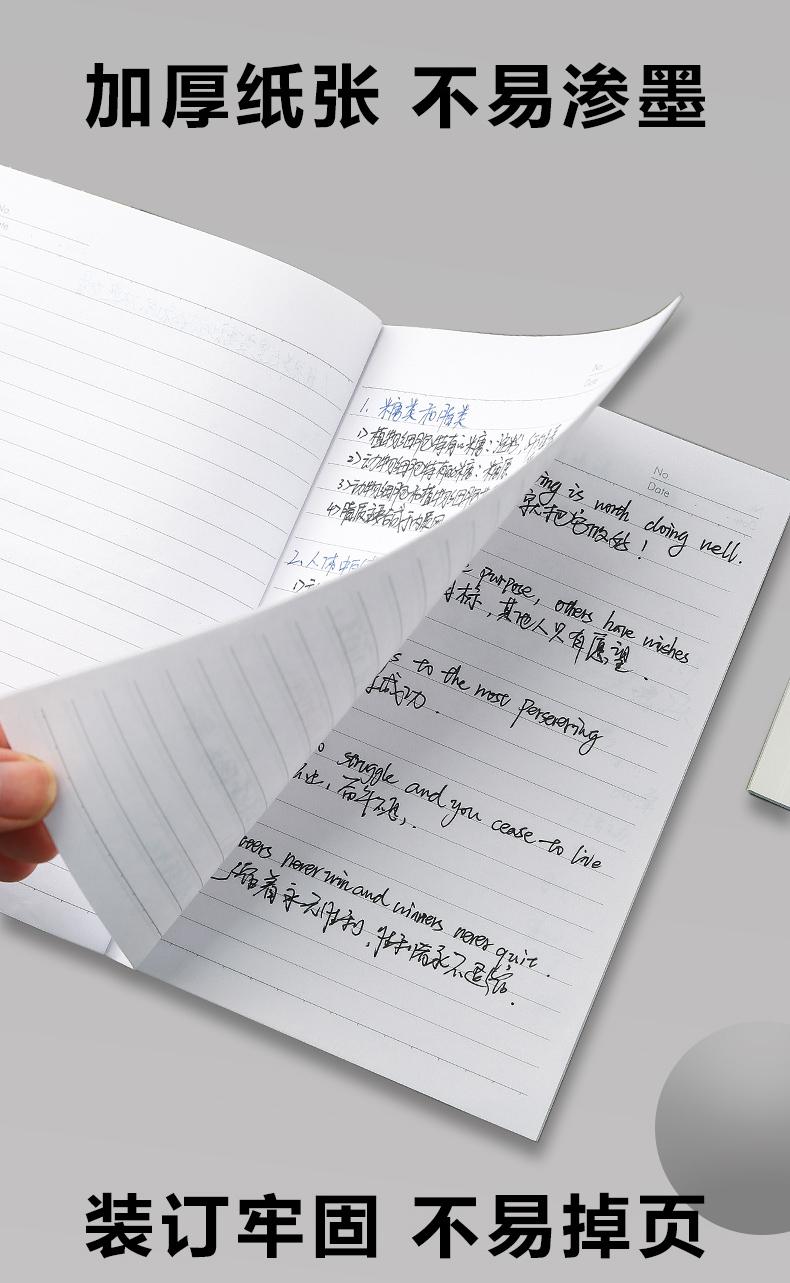 加厚纸张 不易渗墨
No
Date
No
Date
1. 糖类和脂类
1) 植物细胞特有的糖:
2) 动物细胞特有的糖: 糖原
3) 动物细胞和植物细胞
2. 人体中
No
Date
ing is worth doing well.
就把它做好!
purpose, others have wishes
目标, 其他人只有愿望.
s to the most persevering
成功.
struggle and you cease to live
止, 奋斗不息,.
never win and winners never quit.
着永无胜利, 胜利者永不退缩.
装订牢固 不易掉页